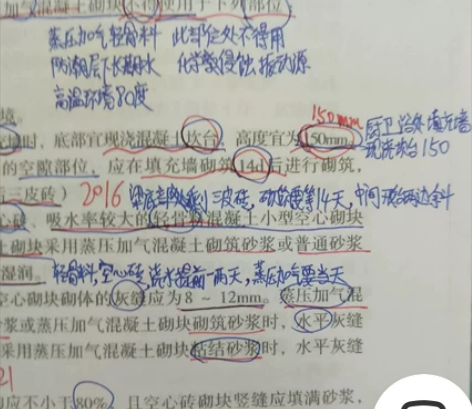 加气混凝土砌块不得使用于下列部位
蒸压加气轻骨料 此部位处不得用
防潮层下长期浸水 化学侵蚀 振动源
高温环境80度
境。
150mm
墙时，底部宜现浇混凝土坎台，高度宜为150mm
厨卫浴外填充墙
现浇坎台150
的空隙部位，应在填充墙砌筑14d后进行砌筑，
后三皮砖）
2016 梁底 三皮砖，砌 要等14天，中间 两边斜
心砖、吸水率较大的轻骨料混凝土小型空心砌块
土砌块采用蒸压加气混凝土砌筑砂浆或普通砂浆
湿润。
轻骨料，空心砖，浇水提前一两天，蒸压加气要当天
空心砌块砌体的灰缝应为8～12mm。蒸压加气混
浆或蒸压加气混凝土砌块砌筑砂浆时，水平灰缝
采用蒸压加气混凝土砌块粘结砂浆时，水平灰缝
21
应不小于80%，且空心砖砌块竖缝应填满砂浆，